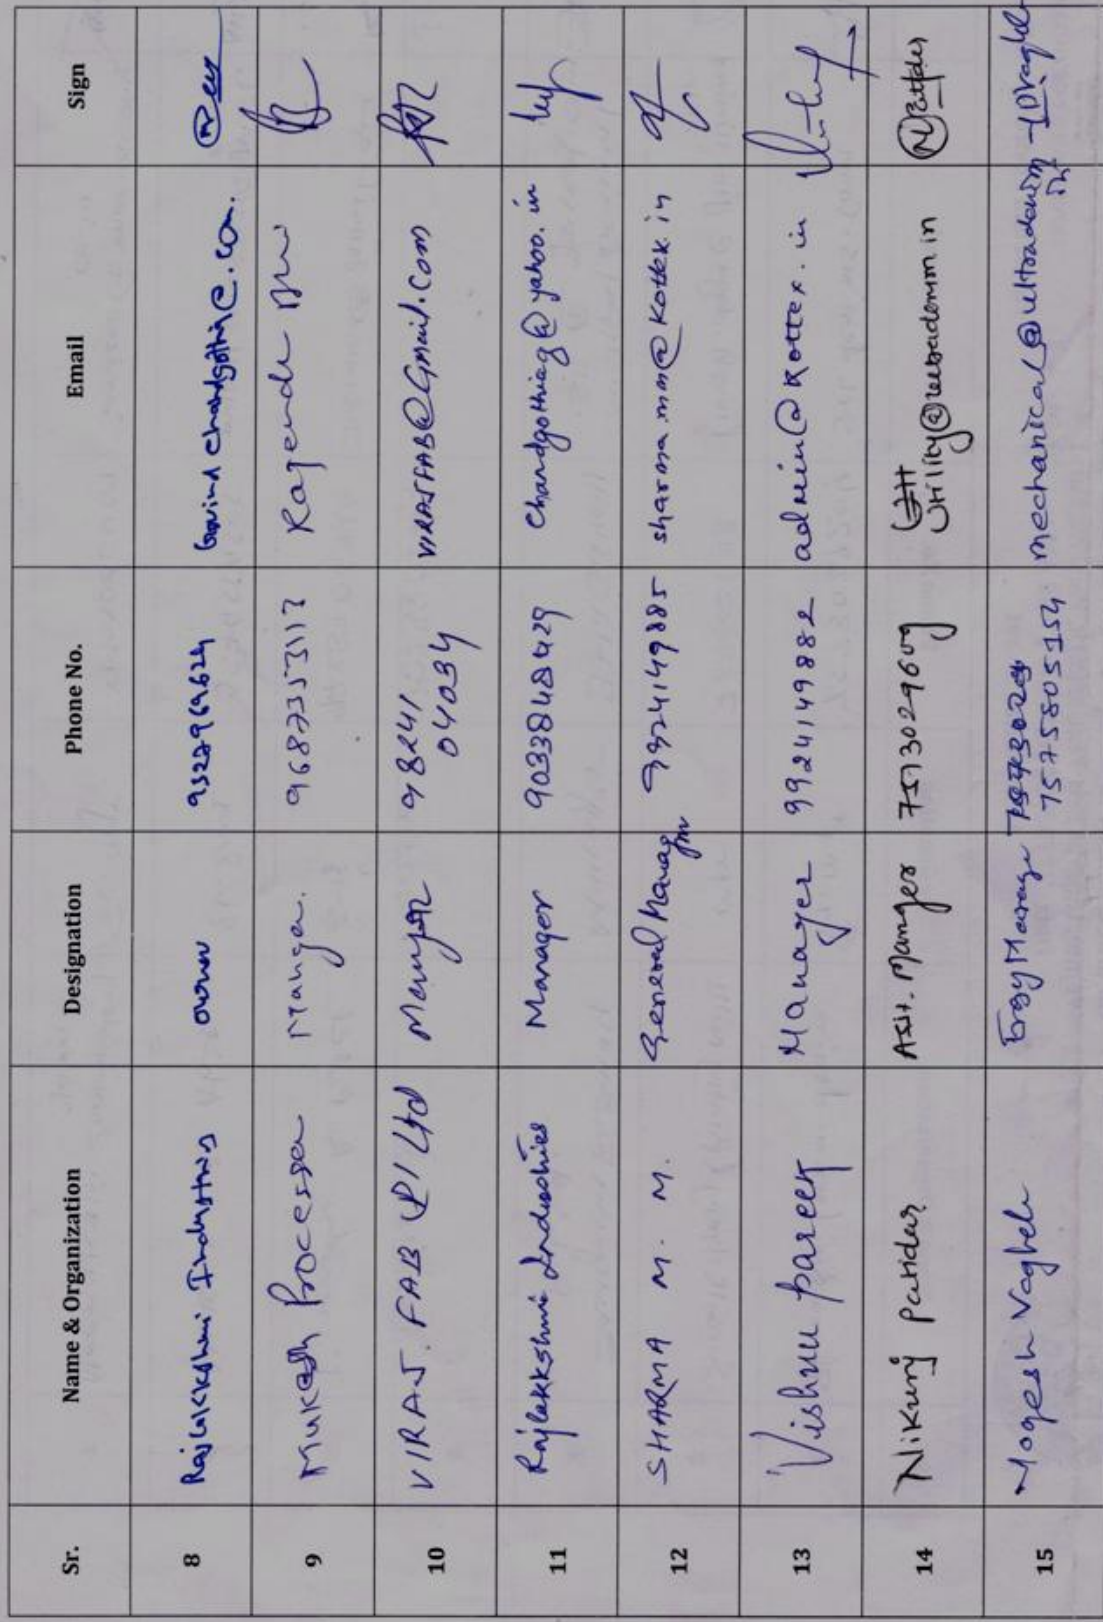 Sr. Name & Organization Designation Phone No. Email Sign
8 Rajlakkshmi Industries owner 9327969624
9 Mukesh Processor Manger. 9687353113 Rajendr
10 VIRAJ. FAB (P) Ltd Manager 98241 VIRAJFAB@Gmail.com
04034
11 Rajlakkshmi Industries Manager 9033848429 Chandgothiag@yahoo.in
12 SHARMA M. M. General Manager 9924149885 sharma.mm@kottex.in
13 Vishnu pareek Manager 9924149882 admin@kottex.in
14 Nikunj Patidar Asst. Manger 7513029609
Utility@ultradenim in
15 Yogesh Vaghela Engy Manage
7575805154 mechanical@ultradenim
in